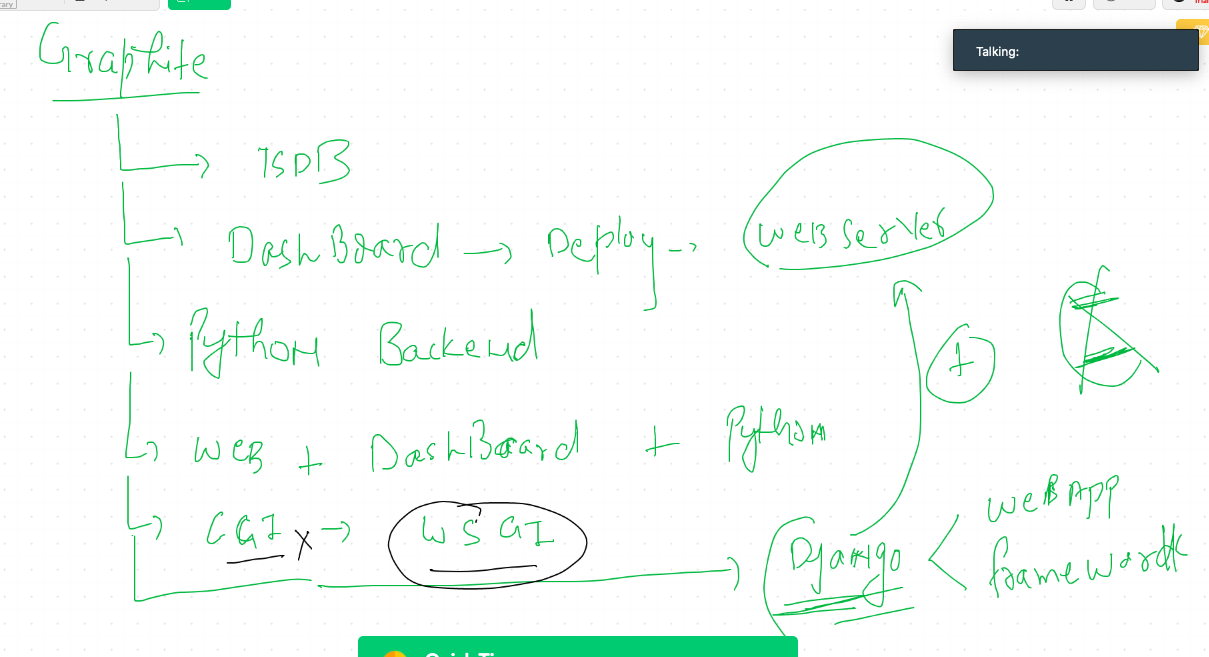 Graphite
Talking:
TSDB
DashBoard → Deploy → WEB Server
Python Backend
1
WEB + DashBoard + Python
CGI X → WSGI
Django
WEB APP
framework